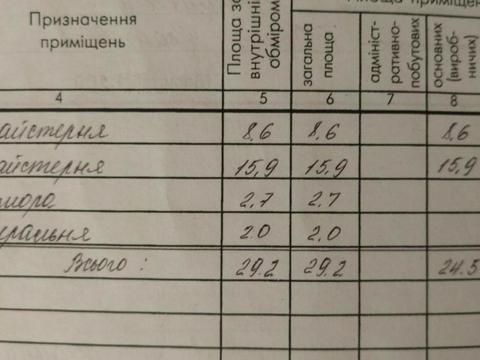 Площа приміщен
Призначення приміщень
Площа за внутрішнім обміром
загальна площа
адмініст-ративно-побутових
основних (вироб-ничих)
4 5 6 7 8
айстерня 8,6 8,6 8,6
айстерня 15,9 15,9 15,9
мора 2,7 2,7
еральня 2.0 2,0
Всього : 29.2 29.2 24.5